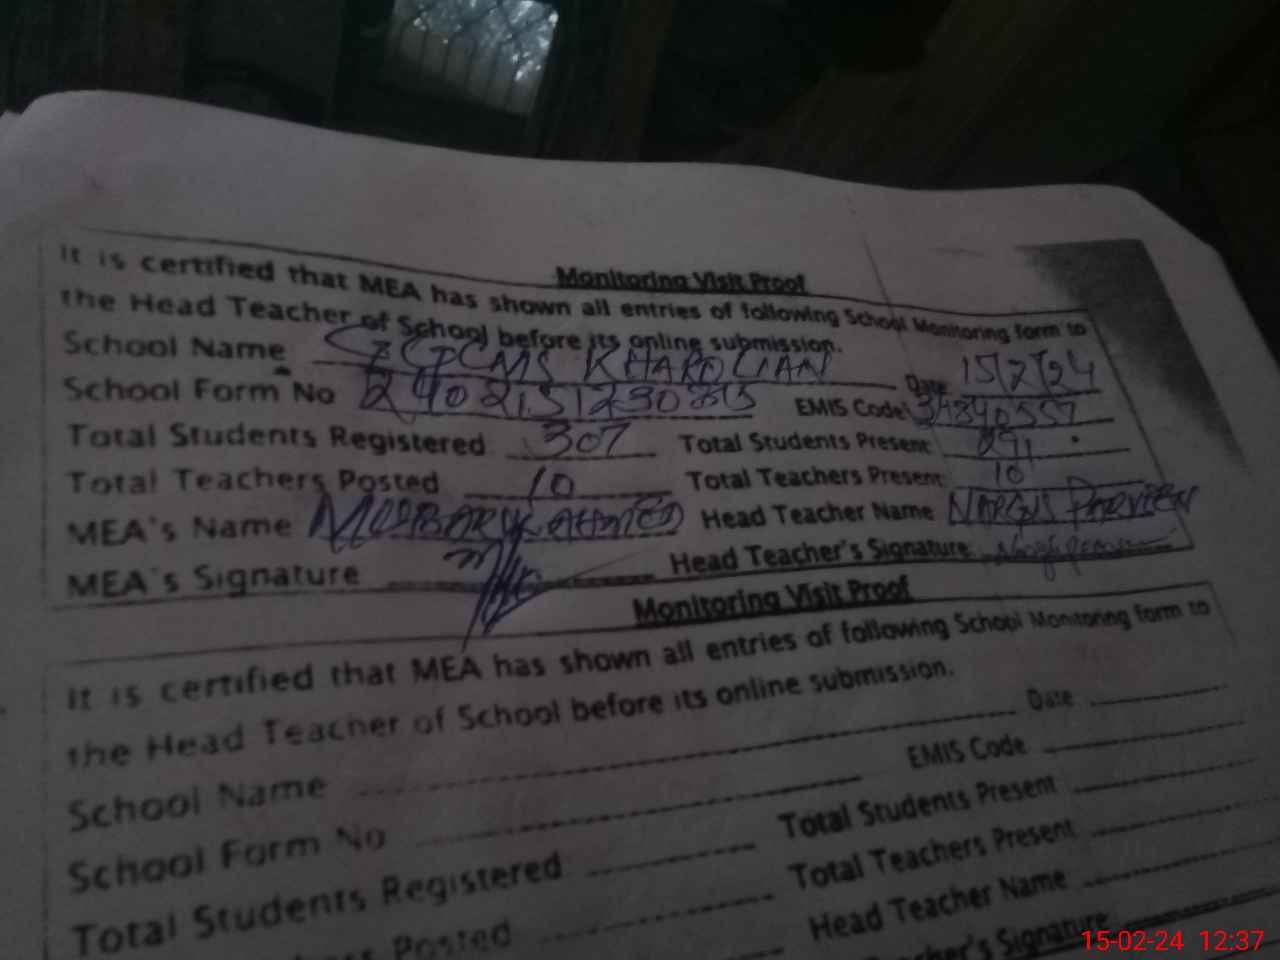 Monitoring Visit Proof
It is certified that MEA has shown all entries of following School Monitoring form to
the Head Teacher of School before its online submission.
School Name GGPCMS KHAROLIAN Date 15/2/24
School Form No EMIS Code 34840557
Total Students Registered 307 Total Students Present 291
Total Teachers Posted 10 Total Teachers Present 10
MEA's Name MUBARK AHMED Head Teacher Name NARGUS PARVEEN
MEA's Signature Head Teacher's Signature
Monitoring Visit Proof
It is certified that MEA has shown all entries of following School Monitoring form to
the Head Teacher of School before its online submission.
School Name Date
School Form No EMIS Code
Total Students Registered Total Students Present
Posted Total Teachers Present
Head Teacher Name
Signature
15-02-24 12:37